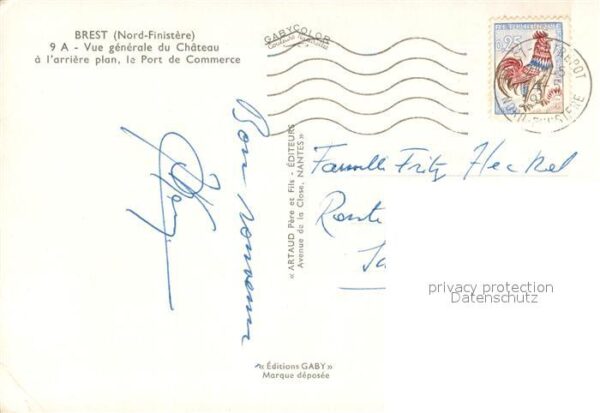 BREST (Nord-Finistère)
9 A - Vue générale du Château
à l'arrière plan, le Port de Commerce
GABYCOLOR
0,25
Bon souvenir
« ARTAUD Père et Fils - ÉDITEURS
Avenue de la Close, NANTES »
Famille Fritz Heckel
Route
privacy protection
Datenschutz
« Éditions GABY »
Marque déposée